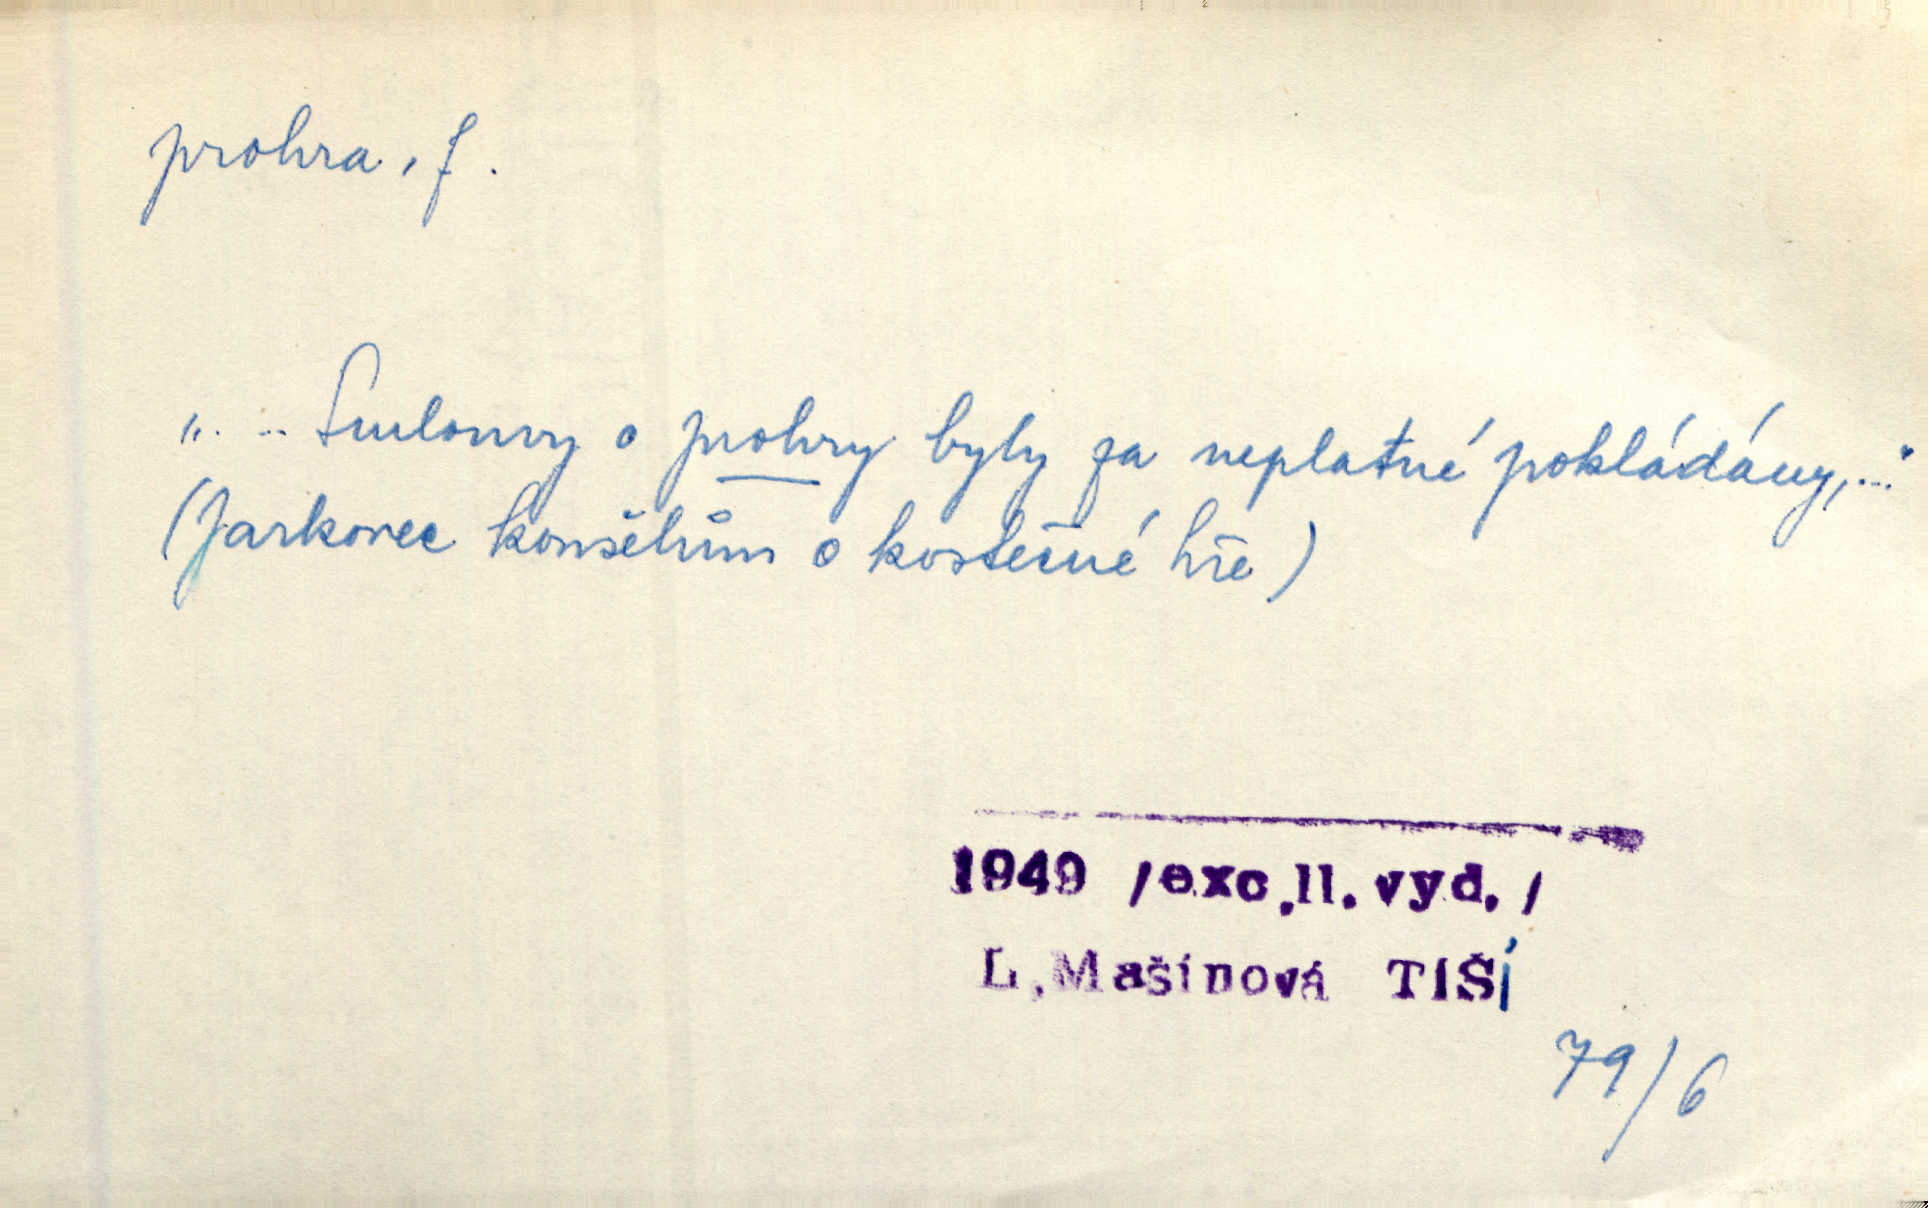 prohra, f.
„... Smlouvy o prohry byly za neplatné pokládány,..."
(Jarkovec konšelům o kostečné hře)
1949 /exc.II.vyd./
L.Mašínová TIŠÍ
79/6